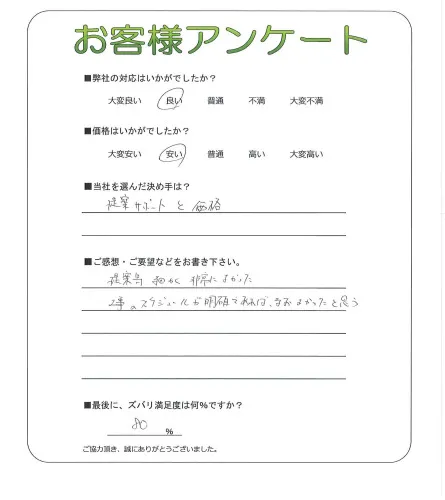 お客様アンケート
■弊社の対応はいかがでしたか？
大変良い 良い 普通 不満 大変不満
■価格はいかがでしたか？
大変安い 安い 普通 高い 大変高い
■当社を選んだ決め手は？
提案サポートと価格
■ご感想・ご要望などをお書き下さい。
提案等 細かく 非常によかった
工事のスケジュールが明確であれば、なおよかったと思う
■最後に、ズバリ満足度は何%ですか？
80 %
ご協力頂き、誠にありがとうございました。